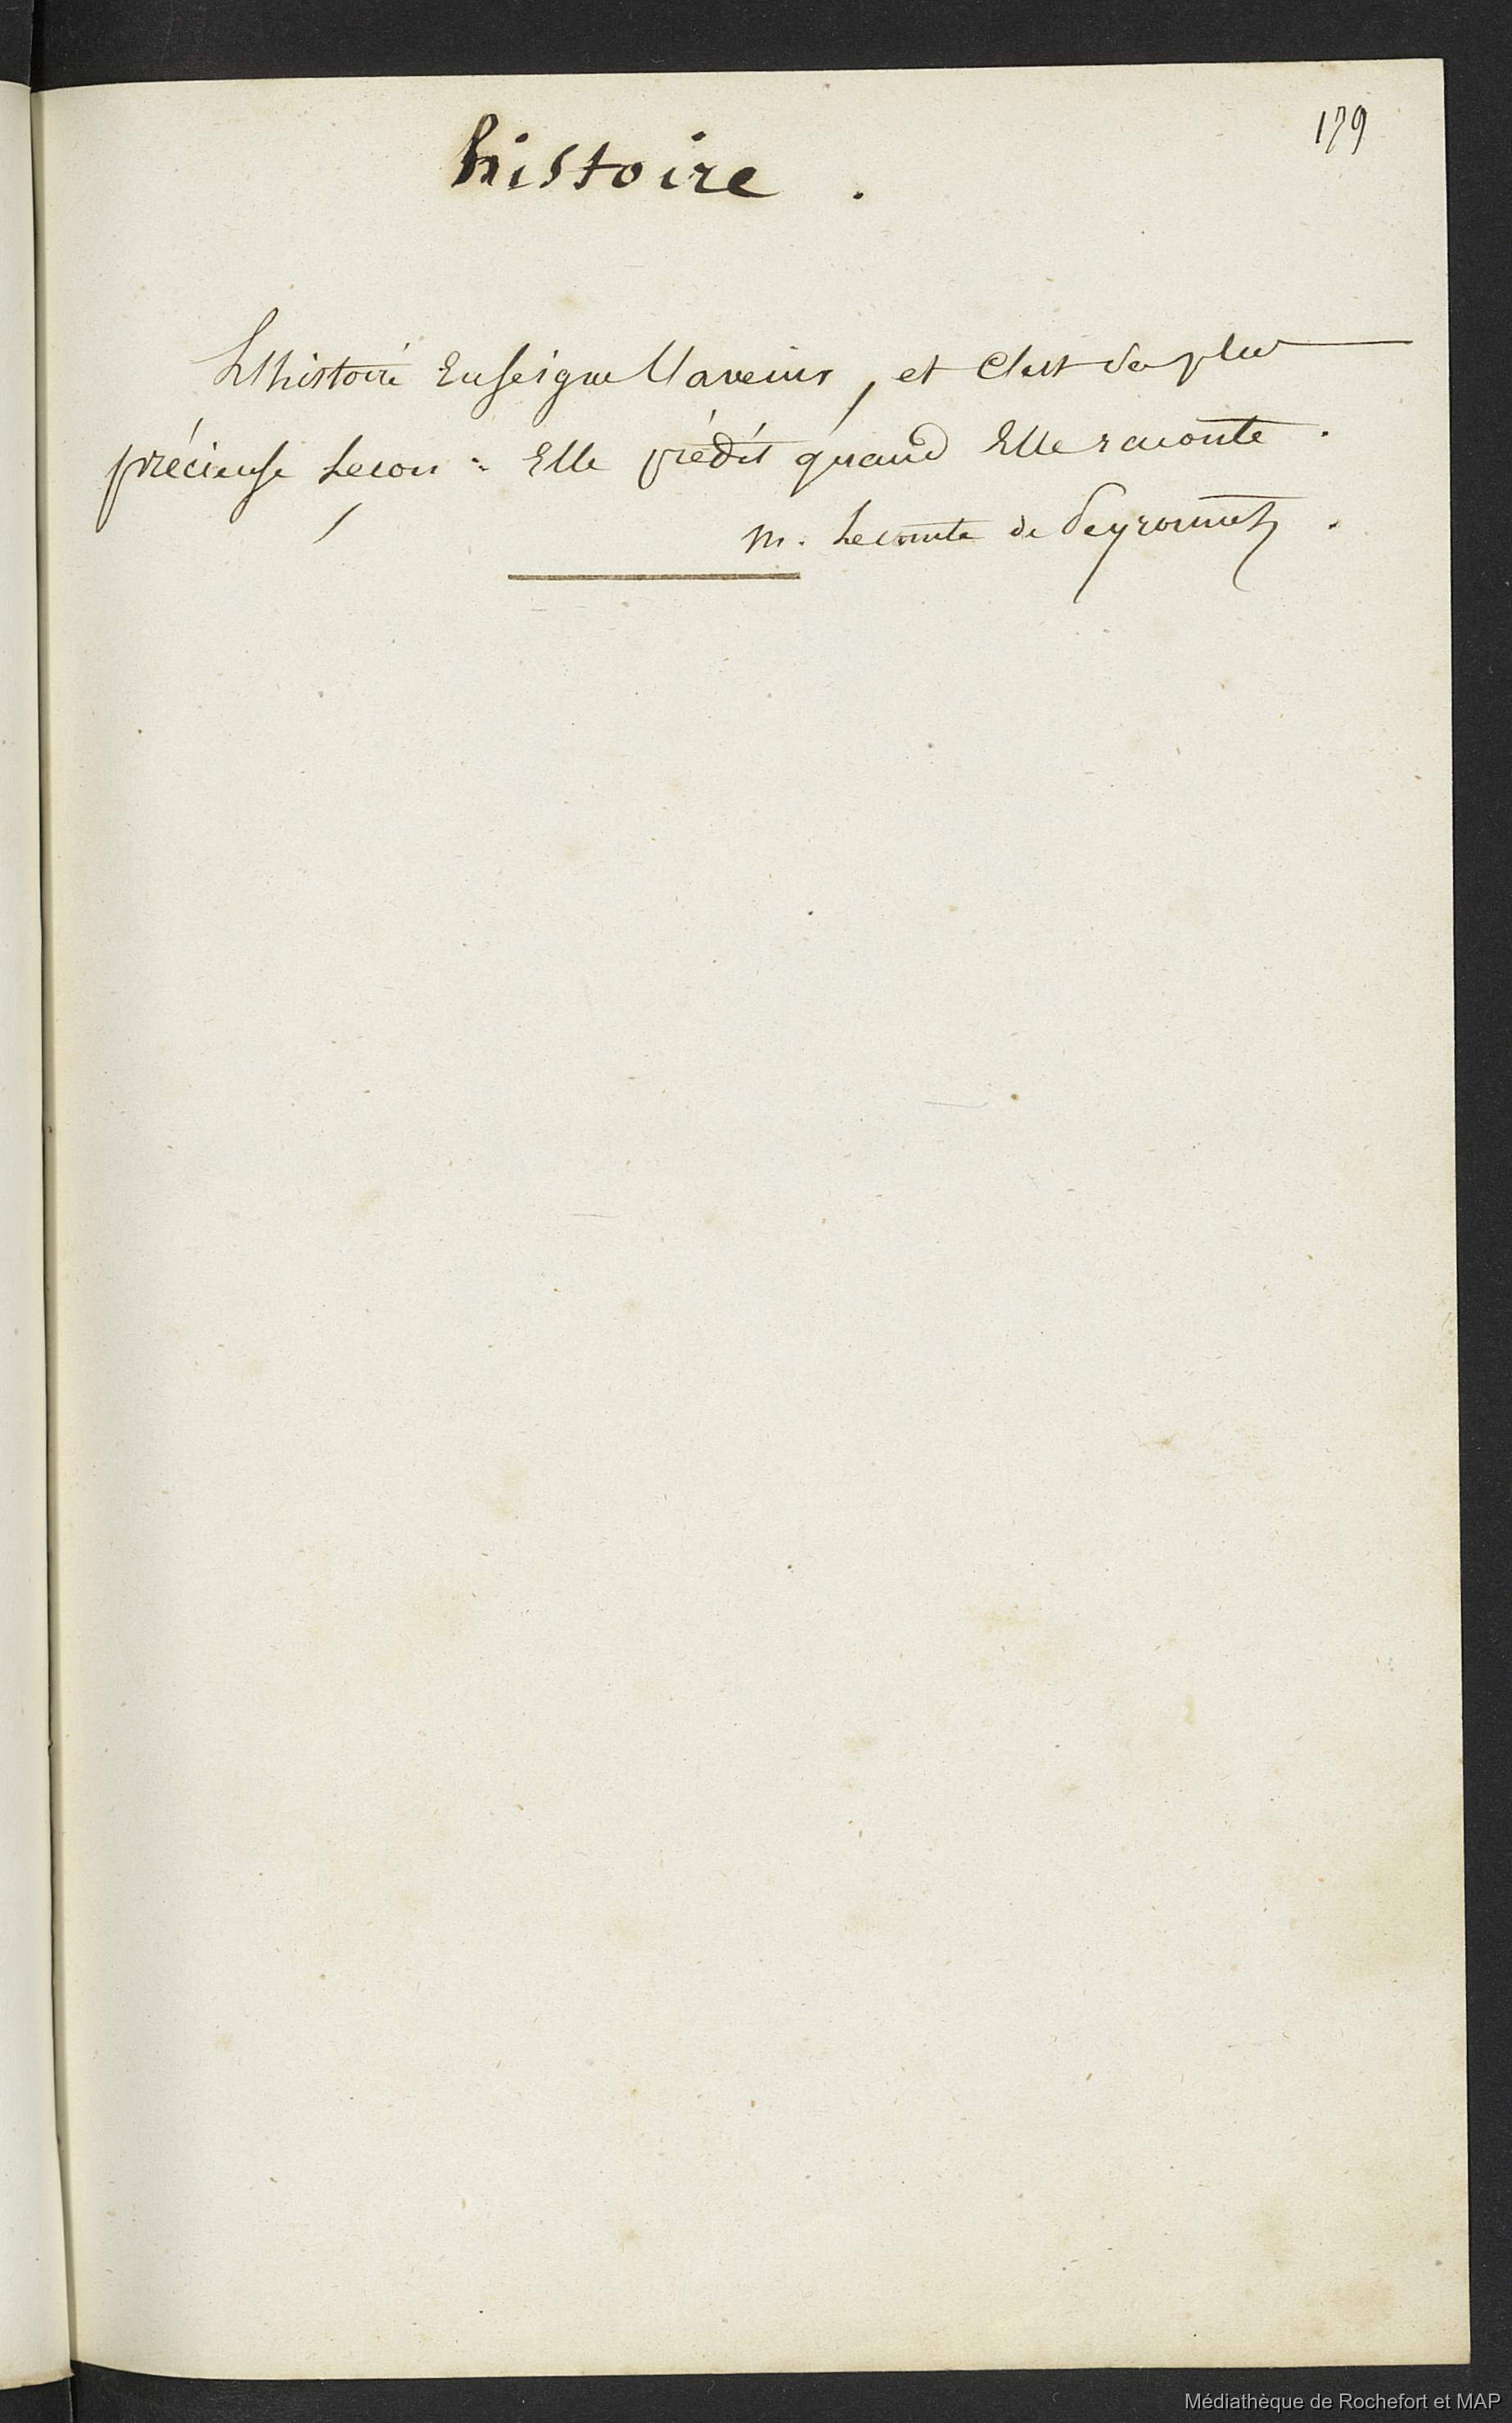 179
histoire .
L'histoire Enseigne l'avenir, et c'est sa plus
précieuse Leçon : Elle prédit quand Elle raconte .
M. Le comte de Peyronnet .
Médiathèque de Rochefort et MAP